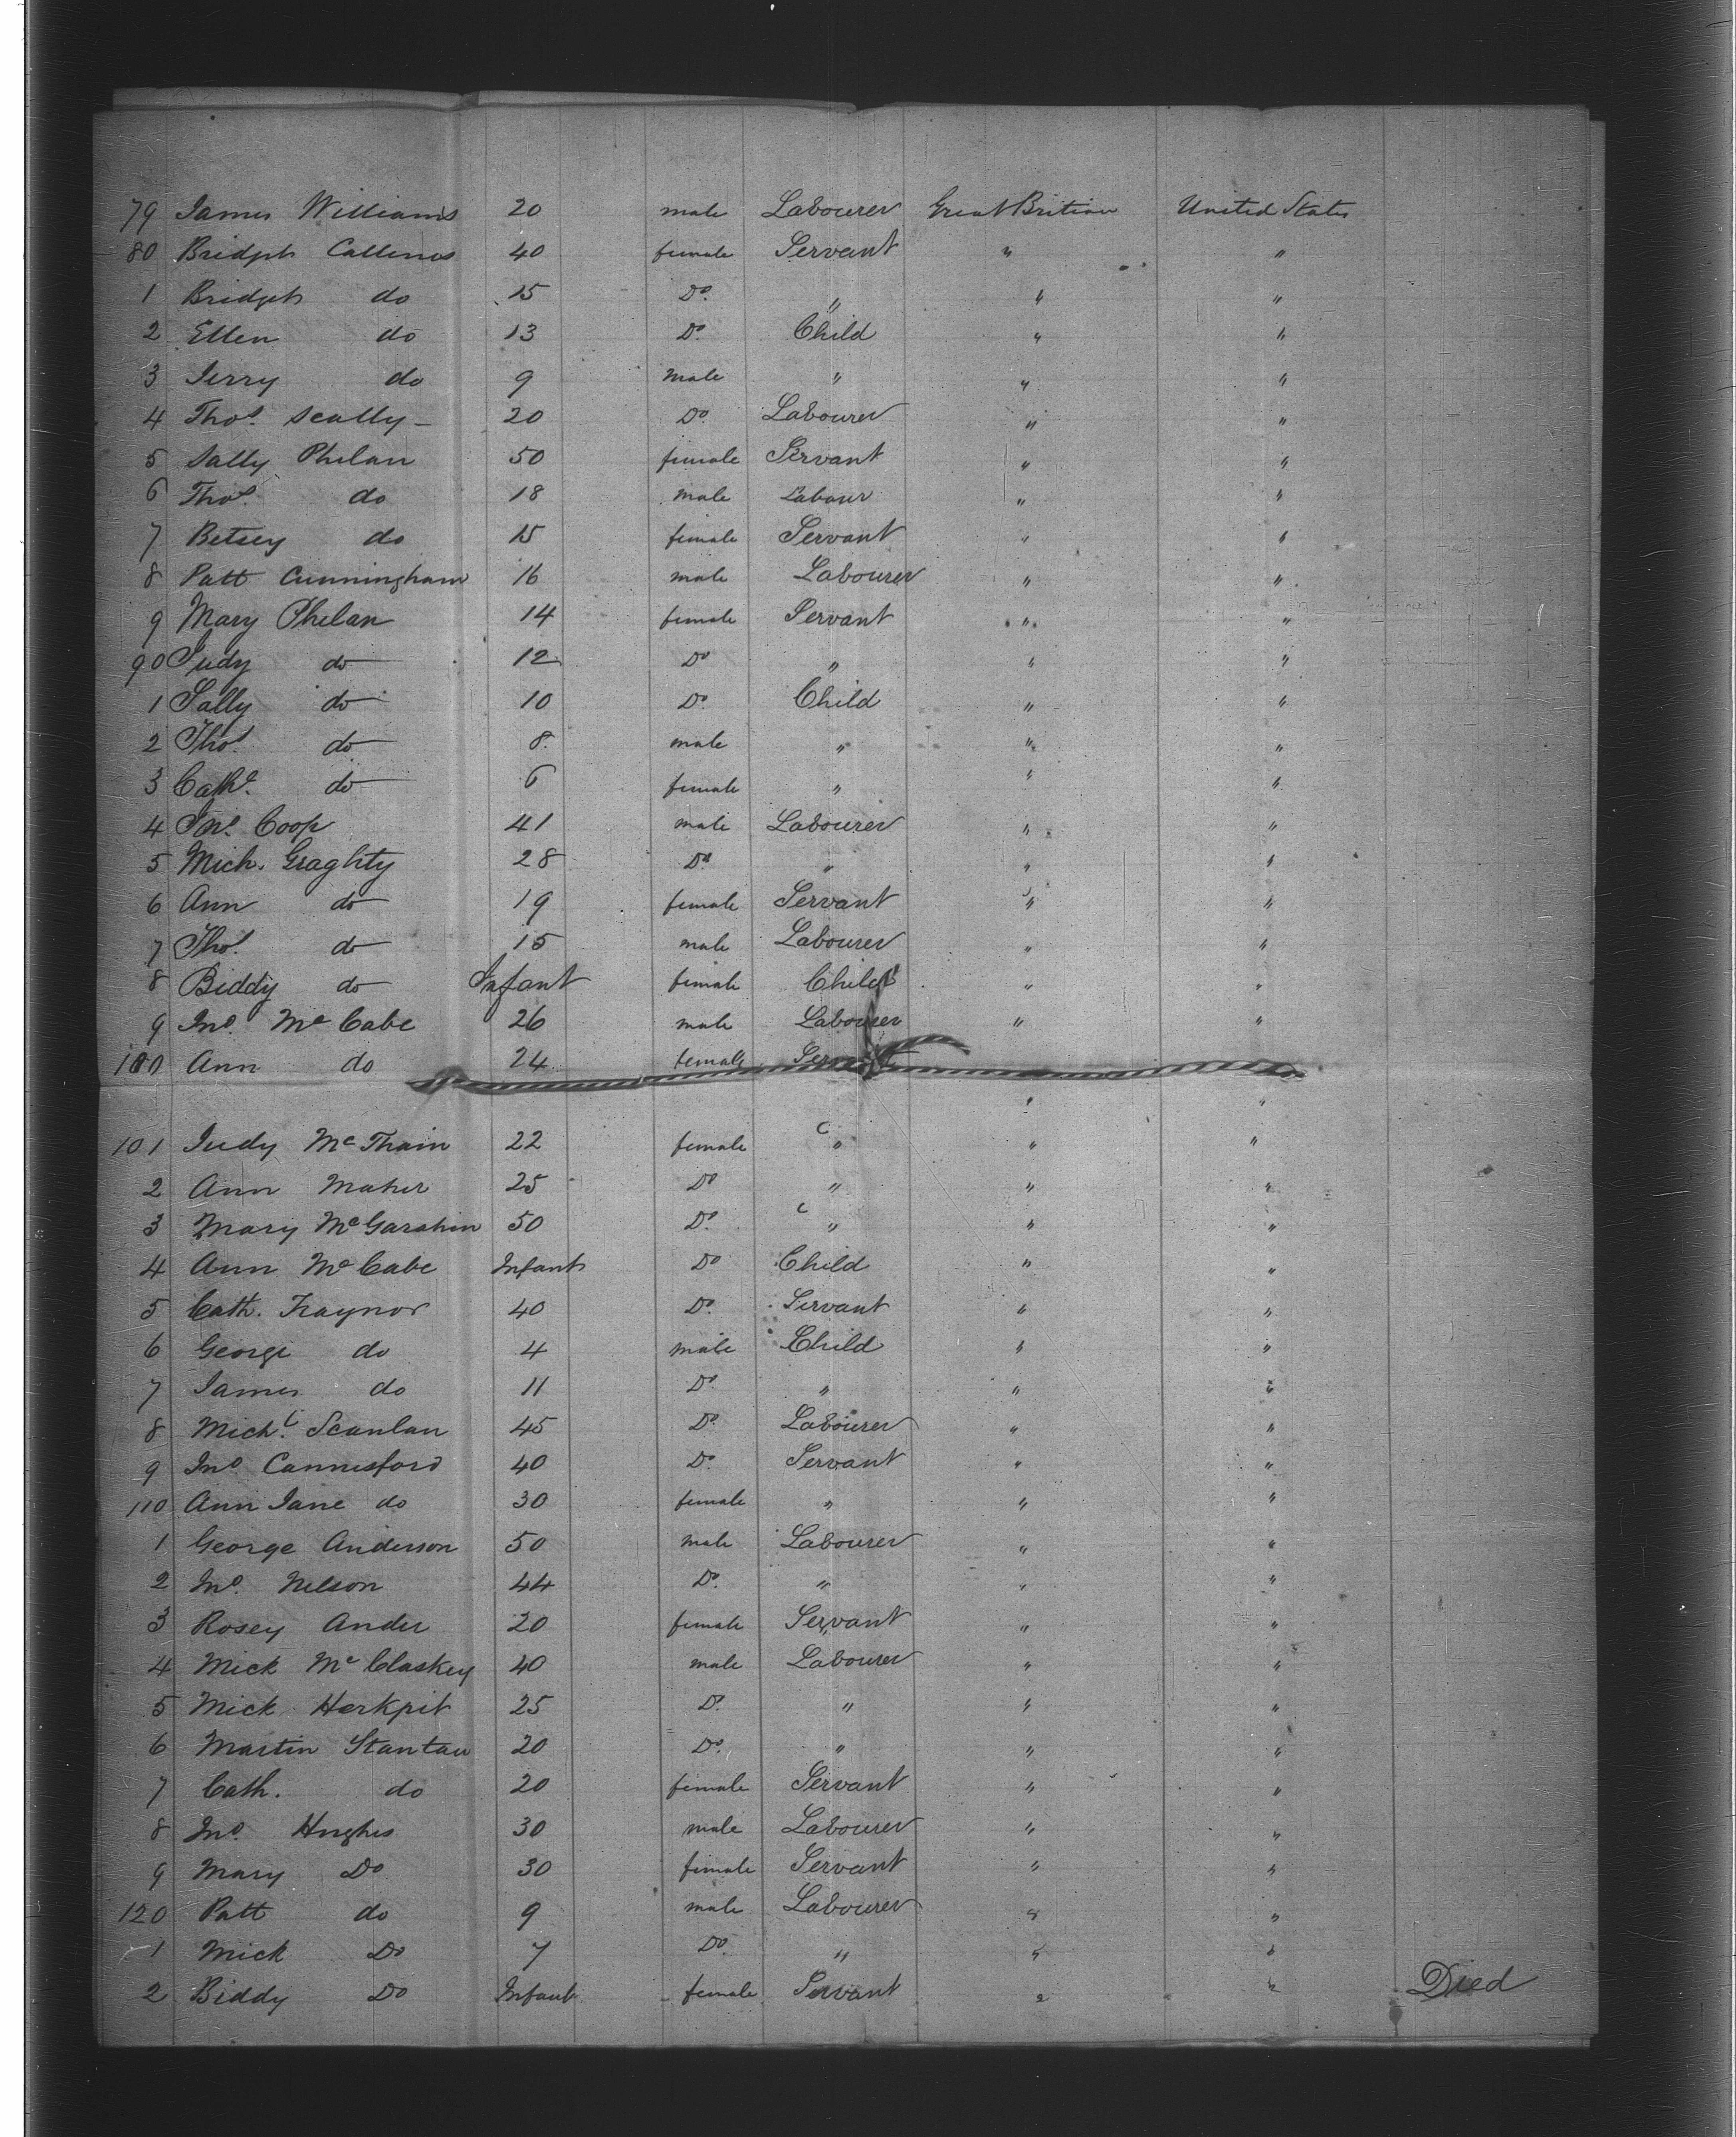 79 James Williams 20 male Labourer Great Britian United States
80 Bridget Callinos 40 female Servant " "
1 Bridget do 15 Do. " " "
2 Ellen do 13 Do. Child " "
3 Jerry do 9 Male " " "
4 Thos. Scally 20 Do. Labourer " "
5 Sally Phelan 50 female Servant " "
6 Thos. do 18 male Labour " "
7 Betsey do 15 female Servant " "
8 Patt Cunningham 16 male Labourer " "
9 Mary Phelan 14 female Servant " "
90 Judy do 12 Do " " "
1 Sally do 10 Do. Child " "
2 Thos. do 8. male " " "
3 Cathe. do 6 female " " "
4 Jno. Coop 41 male Labourer " "
5 Mich. Graghty 28 Do " " "
6 Ann do 19 female Servant " "
7 Thos. do 15 male Labourer " "
8 Biddy do Infant female Child " "
9 Jno. Mc Cabe 26 male Labourer " "
100 Ann do 24 female Servant " "
101 Judy Mc Thain 22 female " " "
2 Ann Maher 25 Do " " "
3 Mary 50 Do. " " "
4 Ann Mc Cabe Infant Do Child " "
5 Cath. Traynor 40 Do. Servant " "
6 George do 4 male Child " "
7 James do 11 Do. " " "
8 Michl. Scanlan 45 Do. Labourer " "
9 Jno Cannisford 40 Do. Servant " "
110 Ann Jane do 30 female " " "
1 George Anderson 50 male Labourer " "
2 Jno. Nelson 44 Do. " " "
3 Rosey Ander 20 female Servant " "
4 Mick Mc Claskey 40 male Labourer " "
5 Mick Herkpit 25 Do. " " "
6 Martin Stantan 20 Do. " " "
7 Cath. do 20 female Servant " "
8 Jno. Hughes 30 male Labourer " "
9 Mary Do 30 female Servant " "
120 Patt do 9 male Labourer " "
1 Mick Do 7 Do. " " "
2 Biddy Do Infant female Servant " " Died